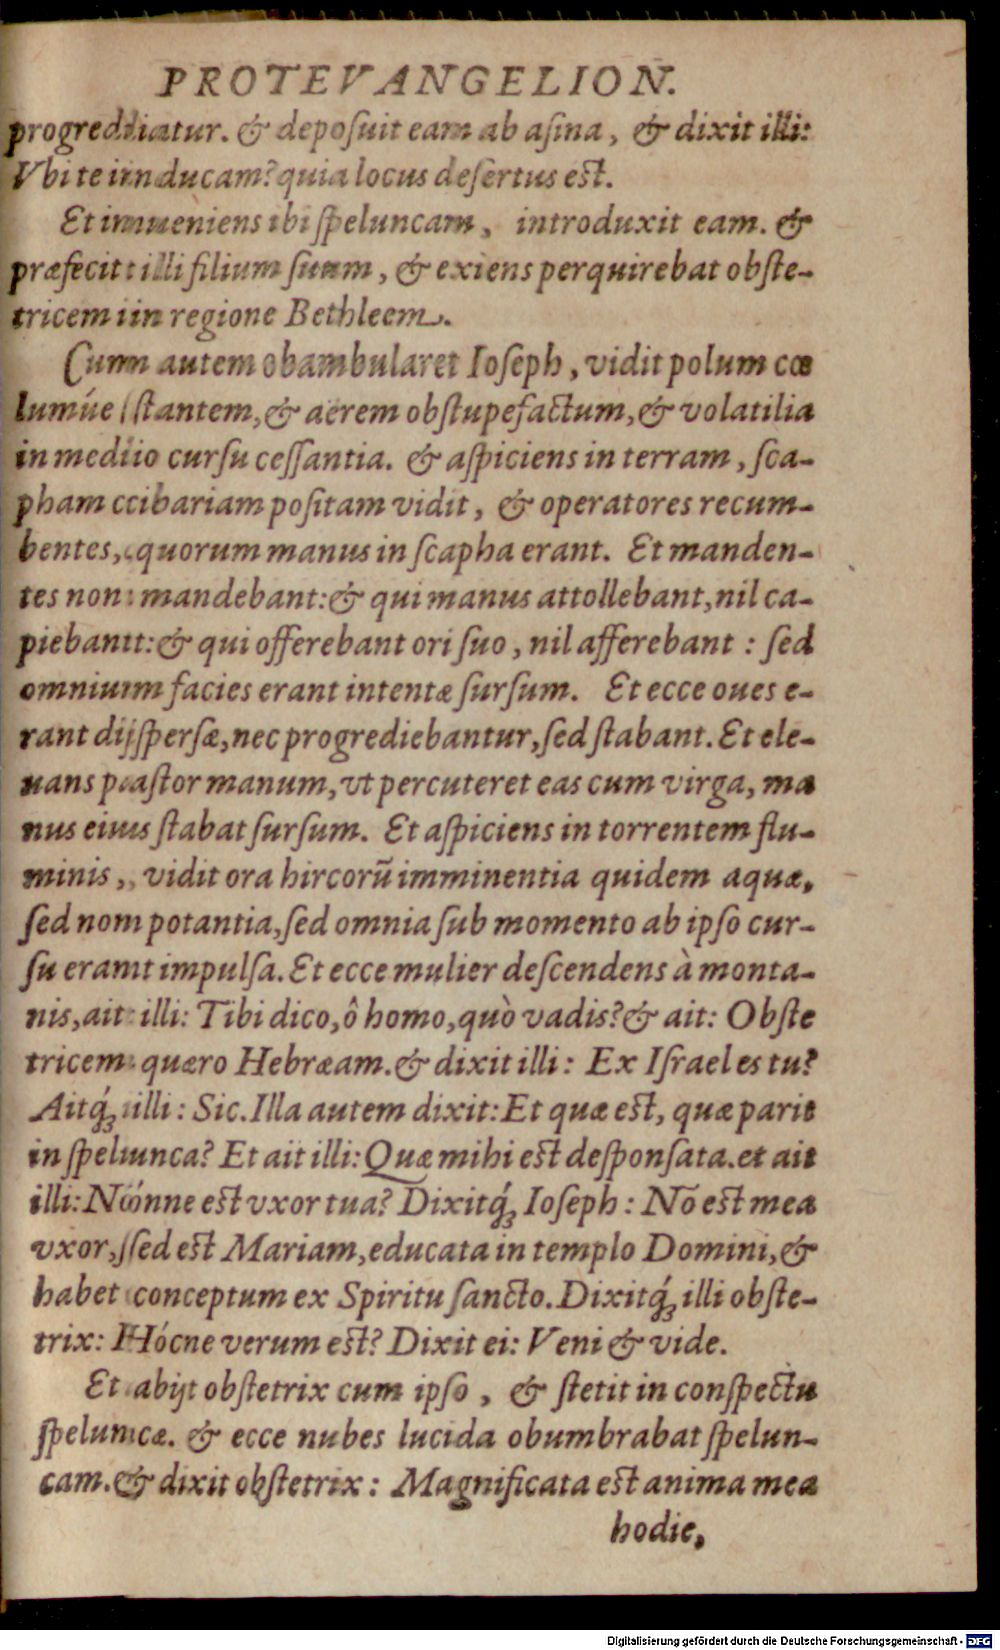 PROTEVANGELION.
progrediatur. & deposuit eam ab asina, & dixit illi:
Vbi te inducam? quia locus desertus est.
Et inueniens ibi speluncam, introduxit eam. &
præfecit illi filium suum, & exiens perquirebat obste-
tricem in regione Bethleem.
Cum autem obambularet Ioseph, vidit polum cœ
lumúe stantem, & aerem obstupefactum, & volatilia
in medio cursu cessantia. & aspiciens in terram, sca-
pham cibariam positam vidit, & operatores recum-
bentes, quorum manus in scapha erant. Et manden-
tes non mandebant: & qui manus attollebant, nil ca-
piebant: & qui offerebant ori suo, nil afferebant : sed
omnium facies erant intentæ sursum. Et ecce oues e-
rant dispersæ, nec progrediebantur, sed stabant. Et ele-
uans pastor manum, vt percuteret eas cum virga, ma
nus eius stabat sursum. Et aspiciens in torrentem flu-
minis, vidit ora hircorũ imminentia quidem aquæ,
sed non potantia, sed omnia sub momento ab ipso cur-
su erant impulsa. Et ecce mulier descendens à monta-
nis, ait illi: Tibi dico, ô homo, quò vadis? & ait: Obste
tricem quæro Hebræam. & dixit illi: Ex Israel es tu?
Aitq́ꝫ illi: Sic. Illa autem dixit: Et quæ est, quæ parit
in spelunca? Et ait illi: Quæ mihi est desponsata. et ait
illi: Nónne est vxor tua? Dixitq́ꝫ Ioseph: Nõ est mea
vxor, sed est Mariam, educata in templo Domini, &
habet conceptum ex Spiritu sancto. Dixitq́ꝫ illi obste-
trix: Hócne verum est? Dixit ei: Veni & vide.
Et abijt obstetrix cum ipso, & stetit in conspectu
speluncæ. & ecce nubes lucida obumbrabat spelun-
cam. & dixit obstetrix: Magnificata est anima mea
hodie,
Digitalisierung gefördert durch die Deutsche Forschungsgemeinschaft - DFG